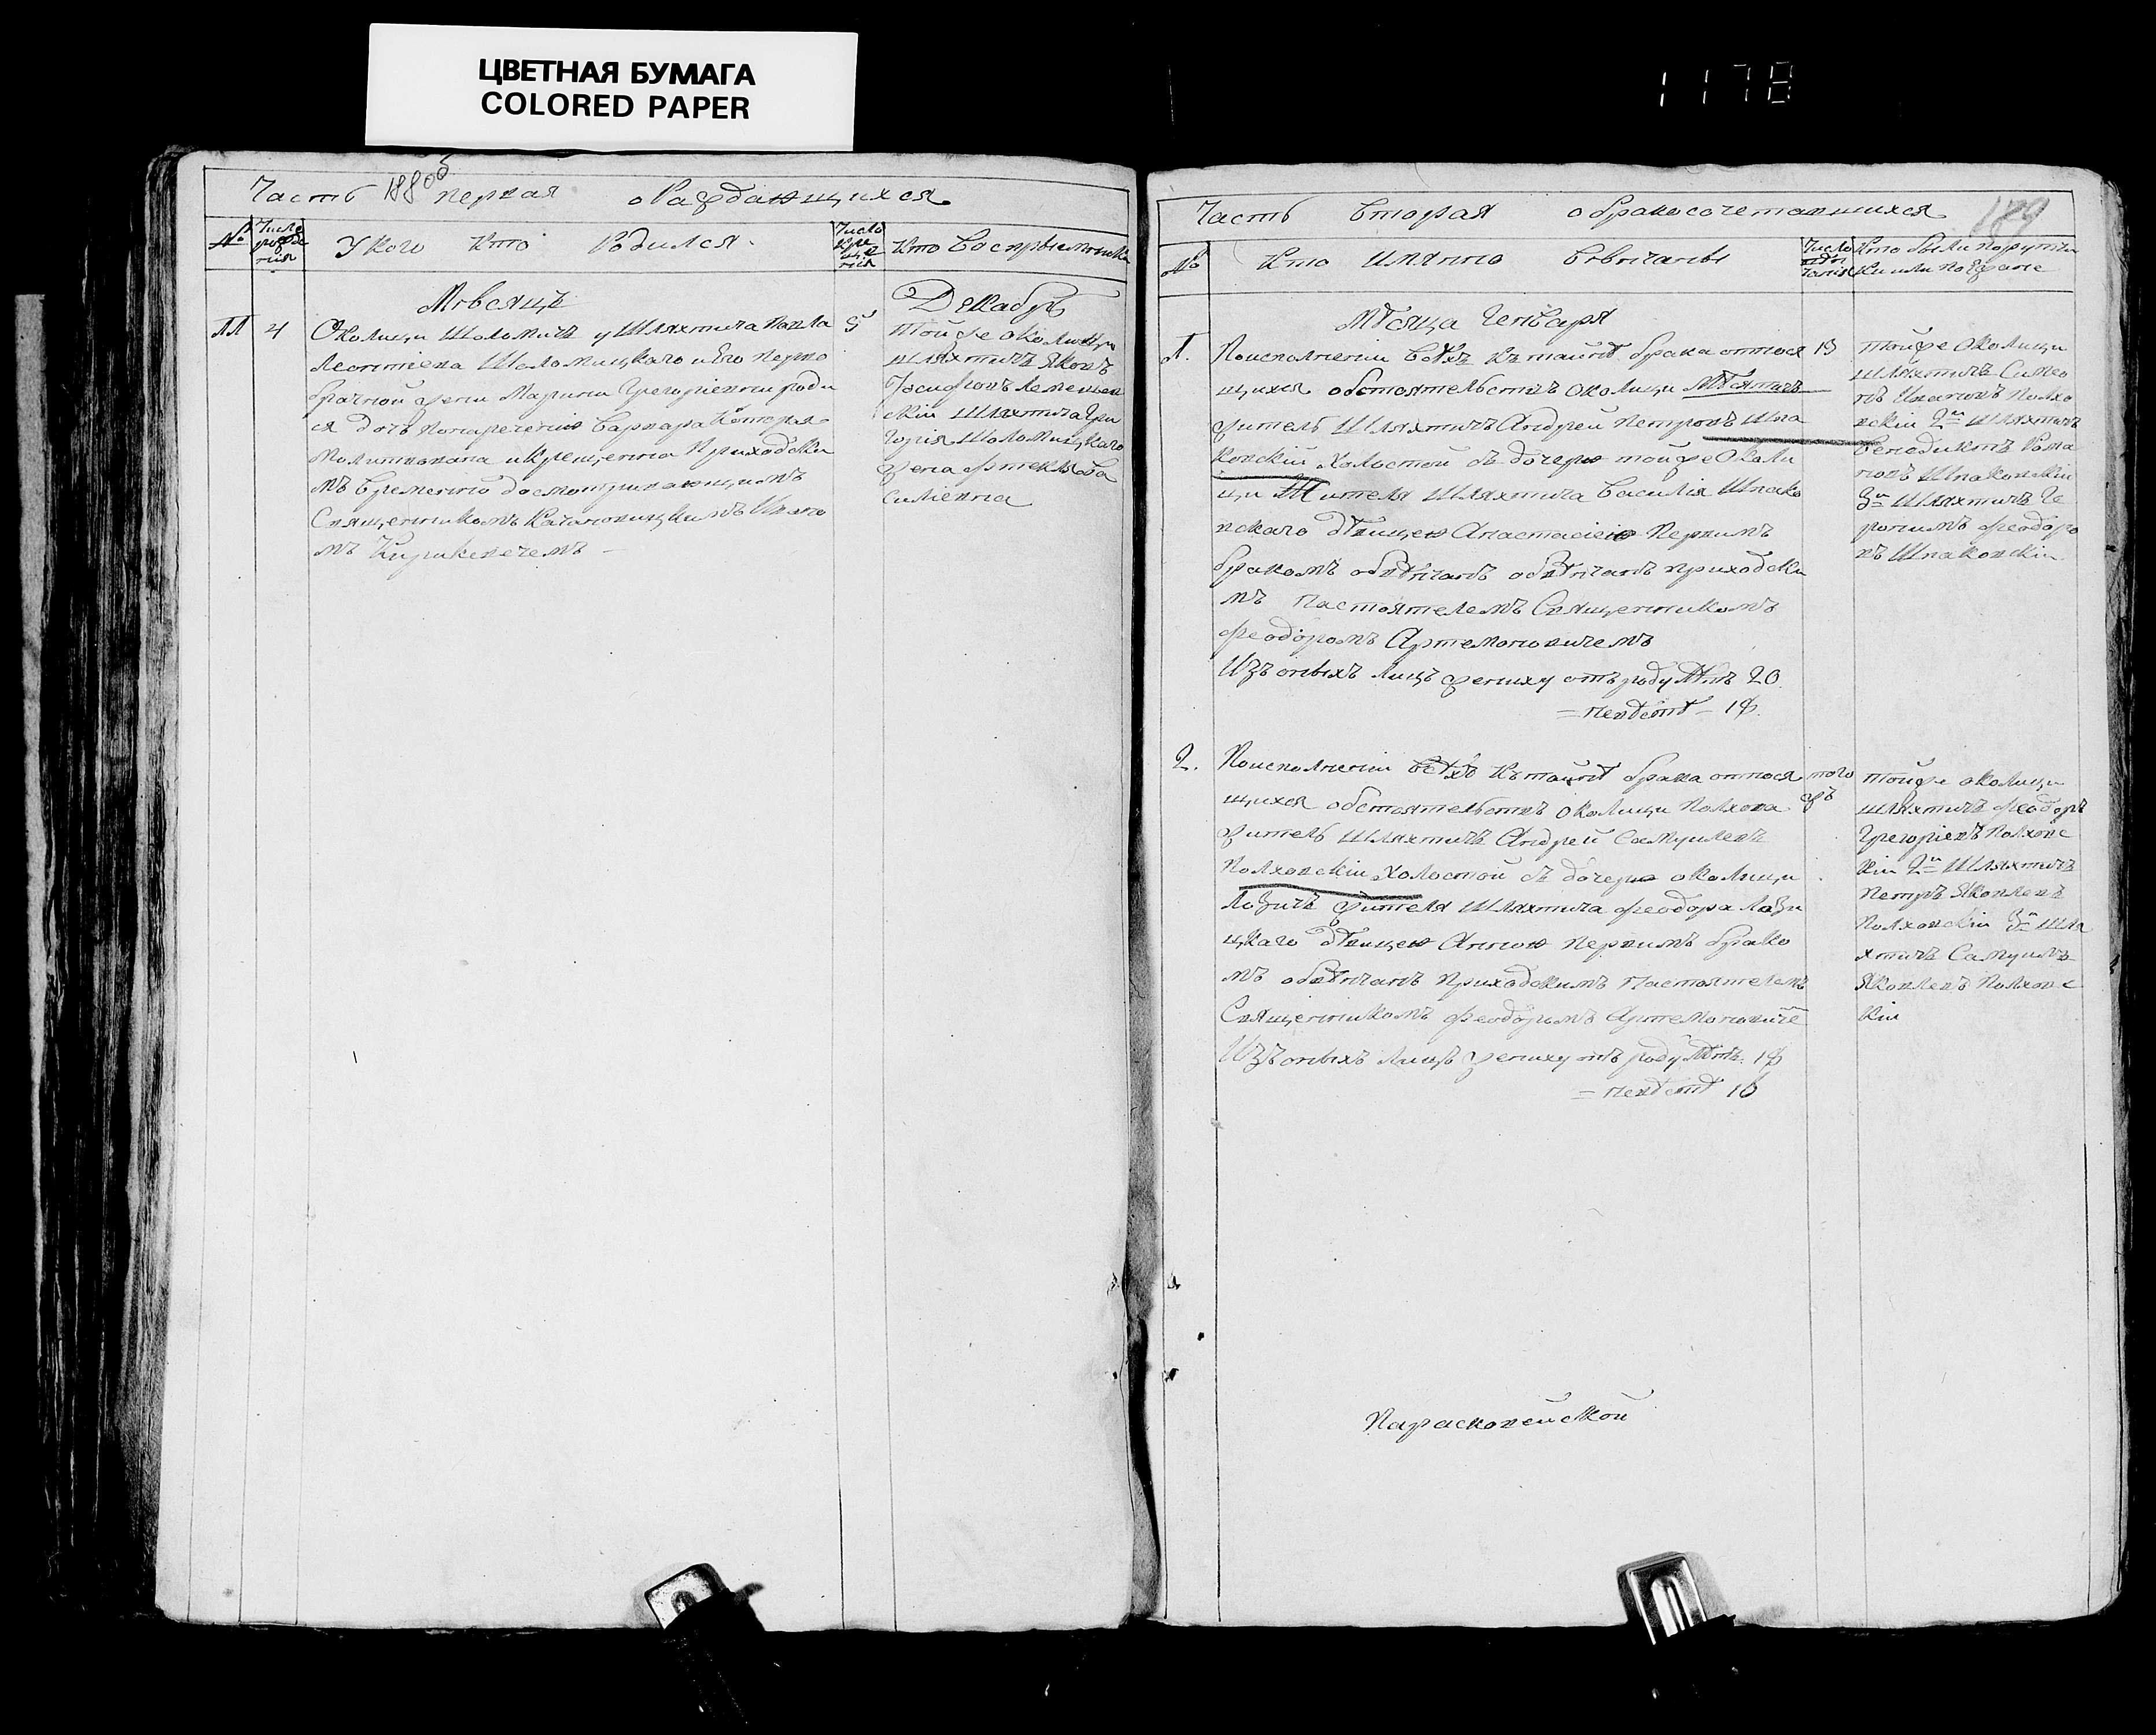 ЦВЕТНАЯ БУМАГА
COLORED PAPER
1178
188 об
Часть первая о Раждающихся
№
Число рожде нія
У кого кто родился
Число кре ще нія
Кто воспріемники
Мѣсяцъ Декабрь
11
4
Околицы Шоломичъ у Шляхтича Павла
Леонтіева Шоломицкаго и Его перво
брачной жены Марины Григоріевны роди
ся дочь Варвара Которая
Молитвована и Крещенна Приходски
мъ временно
Священникомъ Ивано
мъ
5
Той же околицы
шляхтичъ Яковъ
Іосифовъ
скій Шляхтича Гри
горія Шоломицкаго
жена Фтекля Ва
силіевна
Часть вторая о бракосочетавшихся
189
№
Кто имянно вѣнчаны
Число вѣн чанія
Кто были поручи
ки или по Жране
Мѣсяца Генваря
1.
По исполненіи всѣхъ къ тайнѣ брака относя
щихся обстоятельствъ околицы
житель Шляхтичъ Андрей Петровъ Шпа
ковскій холостой съ дочерю той же Околи
цы Жителя Шляхтича Василія Шпако
вскаго дѣвицею Анастасіею Первымъ
бракомъ обвѣнчанъ обвѣнчанъ приходски
мъ Настоятелемъ Священникомъ
Феодоромъ Артемоновичемъ
Изъ оныхъ лицъ жениху отъ роду лѣтъ 20
= невѣстѣ - 18.
19
той же Околицы
шляхтичъ Симео
нъ Ивановъ Полхо
вскій 2й Шляхтичъ
Бенедиктъ Рома
новъ Шпаковскій
3й Шляхтичъ Іе
ронимъ Феодоро
въ Шпаковскій
2.
По исполненіи всѣхъ къ тайнѣ брака относя
щихся обстоятельствъ околицы Полхова
житель Шляхтичъ Андрей Самуилевъ
Полховскій холостой съ дочерю околицы
Лозичъ жителя Шляхтича Феодора Лози
цкаго дѣвицею Анною первымъ брако
мъ обвѣнчанъ приходскимъ Настоятелемъ
Священникомъ Феодоромъ Артемоновиче
Изъ оныхъ лицъ жениху отъ роду лѣтъ. 18
= невѣстѣ 16
того
жъ
той же околицы
шляхтичъ Феодоръ
Григоріевъ Полховс
кій 2й Шляхтичъ
Петръ Яковлевъ
Полховскій 3й Шля
хтичъ Самуилъ
Яковлевъ Полховс
кій
Параскевейской